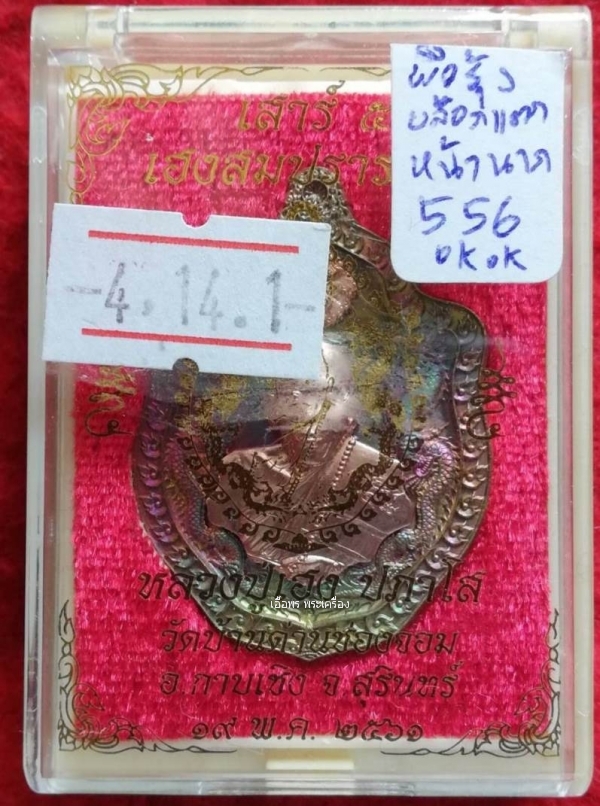 เสาร์ ๕
เฮงสมปราร
ผิวรุ้ง
บล๊อกแตก
หน้านาก
556
OK OK
-4.14.1-
หลวงปู่เฮง ปภาโส
เอื้อพร พระเครื่อง
วัดบ้านด่านช่องจอม
อ.กาบเชิง จ.สุรินทร์
๑๙ พ.ค. ๒๕๖๑